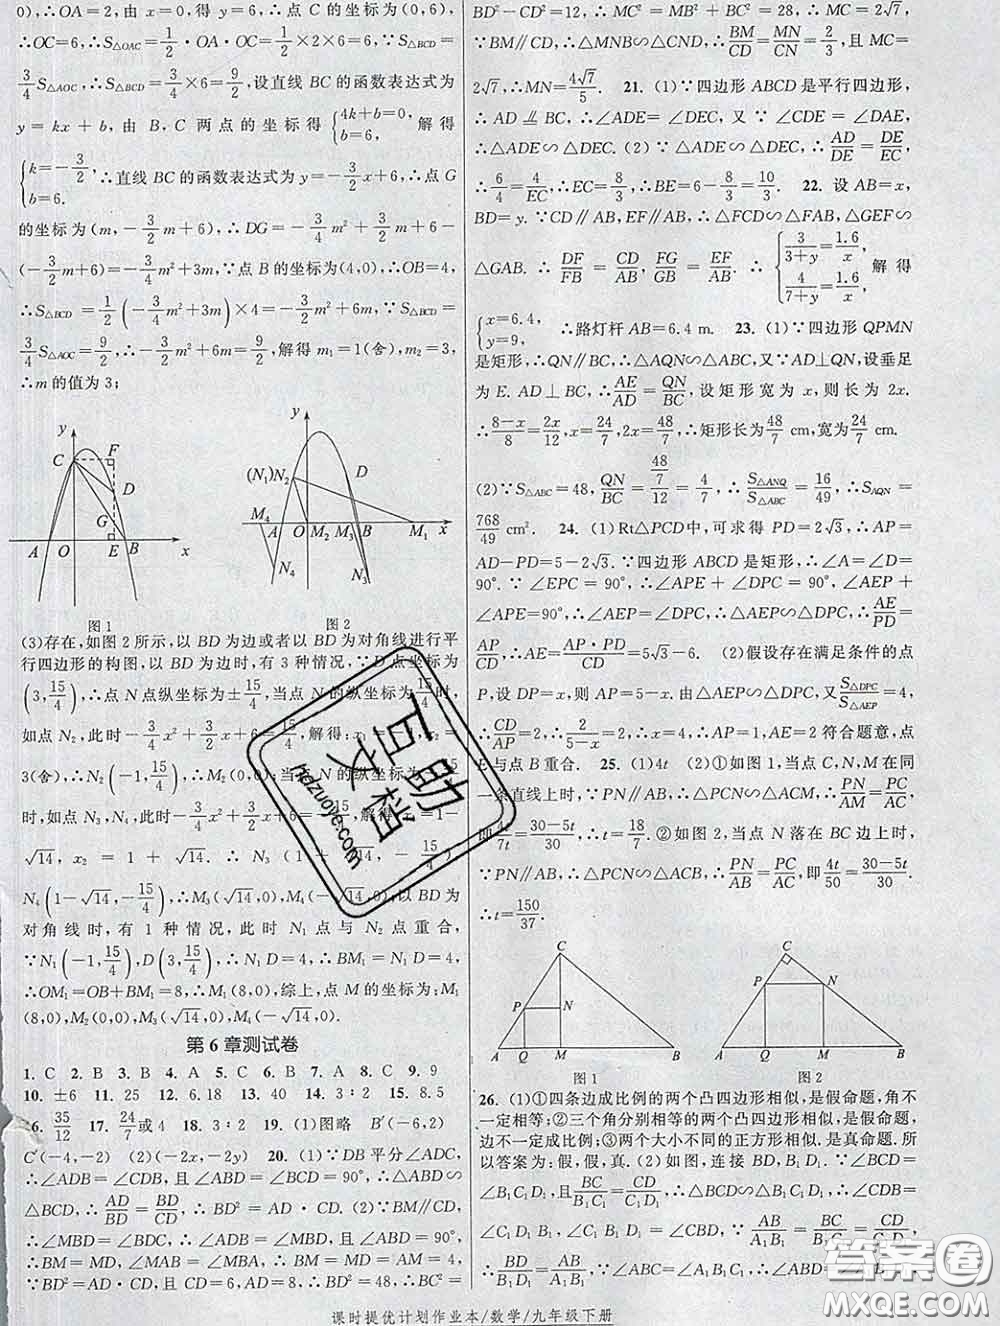 0),∴OA=2,由x=0,得y=6,∴点C的坐标为(0,6),
∴OC=6,∴S△OAC=1/2·OA·OC=1/2×2×6=6,∵S△BCD=
3/4 S△AOC,∴S△BCD=3/4×6=9/2,设直线BC的函数表达式为
y=kx+b,由B,C两点的坐标得{4k+b=0, b=6, 解得
{k=-3/2, b=6. ∴直线BC的函数表达式为y=-3/2x+6,∴点G
的坐标为(m,-3/2m+6),∴DG=-3/4m²+3/2m+6-
(-3/2m+6)=-3/4m²+3m,∵点B的坐标为(4,0),∴OB=4,
∴S△BCD=1/2(-3/4m²+3m)×4=-3/2m²+6m,∵S△BCD=
3/4 S△AOC=9/2,∴-3/2m²+6m=9/2,解得m₁=1(舍),m₂=3,
∴m的值为3;
y
C
F
D
G
A
O
E
B
x
图1
y
(N₁)
N₂
D
M₄
A
O
M₂
M₃
B
M₁
x
N₄
N₃
图2
(3)存在,如图2所示,以BD为边或者以BD为对角线进行平
行四边形的构图,以BD为边时,有3种情况,∵D点坐标为
(3,15/4),∴点N点纵坐标为±15/4,当点N的纵坐标为15/4时,
如点N₂,此时-3/4x²+3/2x+6=15/4,解得:x₁=-1,x₂=
3(舍),∴N₂(-1,15/4),∴M₂(0,0);当点N的纵坐标为-15/4
时,如点N₃,N₄,此时-3/4x²+3/2x+6=-15/4,解得x₁=1-
√14,x₂=1+√14.∴N₃(1+√14,-15/4),
N₄(1-√14,-15/4),∴M₃(√14,0),M₄(-√14,0),以BD为
对角线时,有1种情况,此时N₁点与N₂点重合,
∵N₁(-1,15/4),D(3,15/4),∴N₁D=4,∴BM₁=N₁D=4,
∴OM₁=OB+BM₁=8,∴M₁(8,0),综上,点M的坐标为:M₁
(8,0),M₂(0,0),M₃(√14,0),M₄(-√14,0).
第6章测试卷
1. C 2. B 3. B 4. A 5. C 6. B 7. A 8. C 9. 9
10. ±6 11. 25 12. 6.18 13. 40 14. 3∶2 15. 8.5
16. 35/12 17. 24/7或4 18. 3∶2 19. (1)图略 B′(-6,2)
C′(-4,-2) (2)(-2x,-2y) 20. (1)∵DB平分∠ADC,
∴∠ADB=∠CDB,且∠ABD=∠BCD=90°,∴△ABD∽
△BCD,∴AD/BD=BD/CD,∴BD²=AD·CD (2)∵BM∥CD,
∴∠MBD=∠BDC,∴∠ADB=∠MBD,且∠ABD=90°,
∴BM=MD,∠MAB=∠MBA,∴BM=MD=AM=4,
∵BD²=AD·CD,且CD=6,AD=8,∴BD²=48,∴BC²=
BD²-CD²=12,∴MC²=MB²+BC²=28,∴MC=2√7,
∵BM∥CD,∴△MNB∽△CND,∴BM/CD=MN/CN=2/3,且MC=
2√7,∴MN=4√7/5. 21. (1)∵四边形ABCD是平行四边形,
∴AD∥BC,∴∠ADE=∠DEC,又∵∠CDE=∠DAE,
∴△ADE∽△DEC. (2)∵△ADE∽△DEC,∴AD/DE=DE/EC,
∴6/4=4/EC,∴EC=8/3,∴BE=6-8/3=10/3. 22. 设AB=x,
BD=y.∵CD∥AB,EF∥AB,∴△FCD∽△FAB,△GEF∽
△GAB.∴DF/FB=CD/AB,FG/GB=EF/AB.∴{3/(3+y)=1.6/x, 4/(7+y)=1.6/x, 解得
{x=6.4, y=9, ∴路灯杆AB=6.4 m. 23. (1)∵四边形QPMN
是矩形,∴QN∥BC,∴△AQN∽△ABC,又∵AD⊥QN,设垂足
为E.AD⊥BC,∴AE/AD=QN/BC,设矩形宽为x,则长为2x.
∴(8-x)/8=2x/12,∴x=24/7,2x=48/7,∴矩形长为48/7 cm,宽为24/7 cm.
(2)∵S△ABC=48,QN/BC=(48/7)/12=4/7,∴S△ANQ/S△ABC=16/49,∴S△AQN=
768/49 cm². 24. (1)Rt△PCD中,可求得PD=2√3,∴AP=
AD-PD=5-2√3.∵四边形ABCD是矩形,∴∠A=∠D=
90°.∵∠EPC=90°,∴∠APE+∠DPC=90°,∵∠AEP+
∠APE=90°,∴∠AEP=∠DPC,∴△AEP∽△DPC,∴AE/PD=
AP/CD,∴AE=AP·PD/CD=5√3-6. (2)假设存在满足条件的点
P,设DP=x,则AP=5-x.由△AEP∽△DPC,又S△DPC/S△AEP=4,
∴CD/AP=2,∴2/(5-x)=2,∴x=4,∴AP=1,AE=2符合题意,点
E与点B重合. 25. (1)4t (2)①如图1,当点C,N,M在同
一条直线上时,∵PN∥AB,∴△CPN∽△ACM,∴PN/AM=PC/AC,
即4t/7=(30-5t)/30,∴t=18/7.②如图2,当点N落在BC边上时,
∵PN∥AB,∴△PCN∽△ACB,∴PN/AB=PC/AC,即4t/50=(30-5t)/30,
∴t=150/37.
C
P
N
A
Q
M
B
图1
C
P
N
A
Q
M
B
图2
26. (1)①四条边成比例的两个凸四边形相似,是假命题,角不
一定相等;②三个角分别相等的两个凸四边形相似,是假命题,
边不一定成比例;③两个大小不同的正方形相似.是真命题.所
以答案为:假,假,真. (2)如图,连接BD,B₁D₁.∵∠BCD=
∠B₁C₁D₁,且BC/B₁C₁=CD/C₁D₁,∴△BCD∽△B₁C₁D₁,∴∠CDB=
∠C₁D₁B₁,∠C₁B₁D₁=∠CBD,∵AB/A₁B₁=BC/B₁C₁=CD/C₁D₁,
∴BD/B₁D₁=AB/A₁B₁,∵∠ABC=
课时提优计划作业本/数学/九年级下册
百助文档
hdzuoye.com
答案圈
MXQE.COM